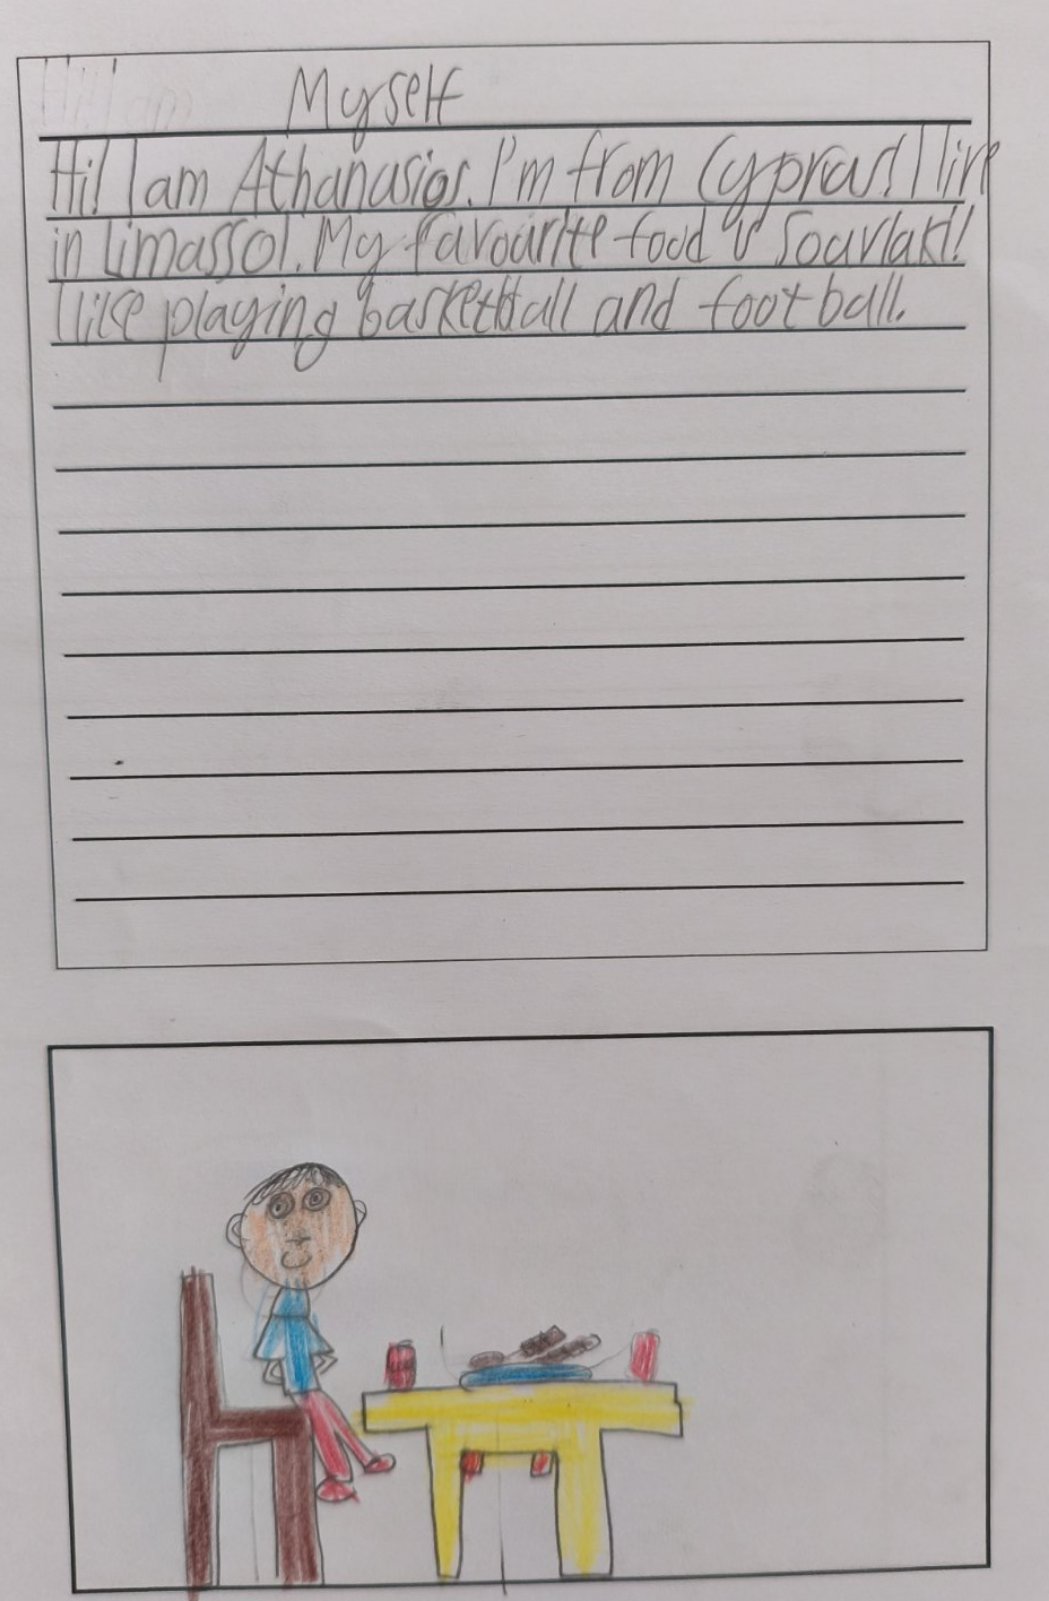 Myself
Hi! I am Athanasios. I'm from Cyprus! I live
in Limassol. My favourite food is Souvlaki!
I like playing basketball and football.